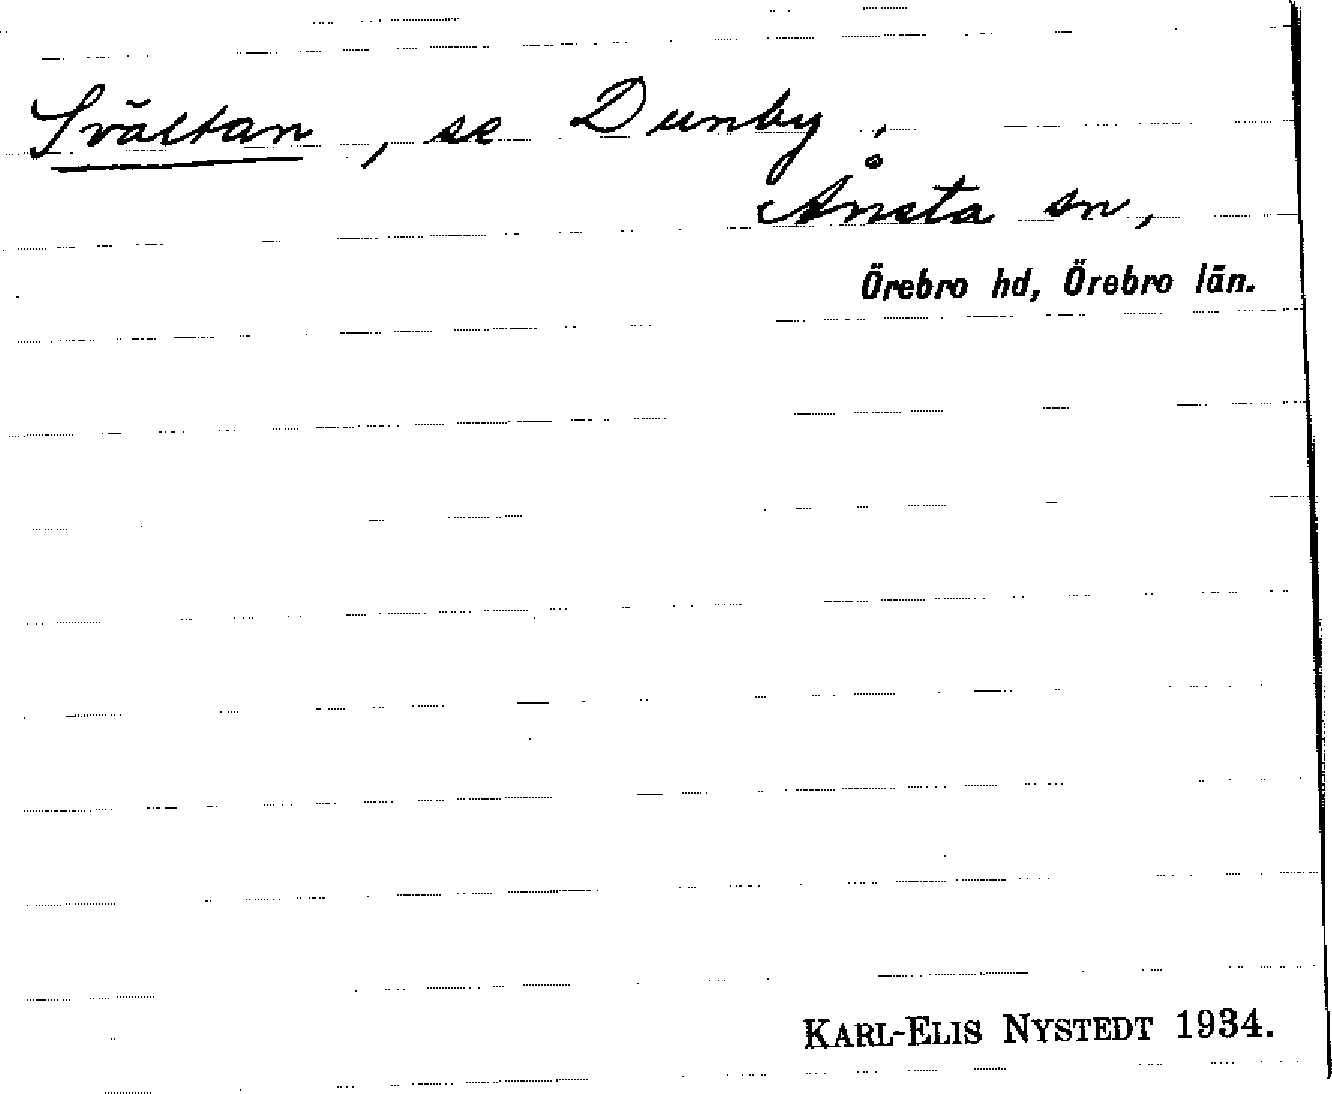 Svältan, se Dunby,
Ånsta sn,
Örebro hd, Örebro län.
KARL-ELIS NYSTEDT 1934.